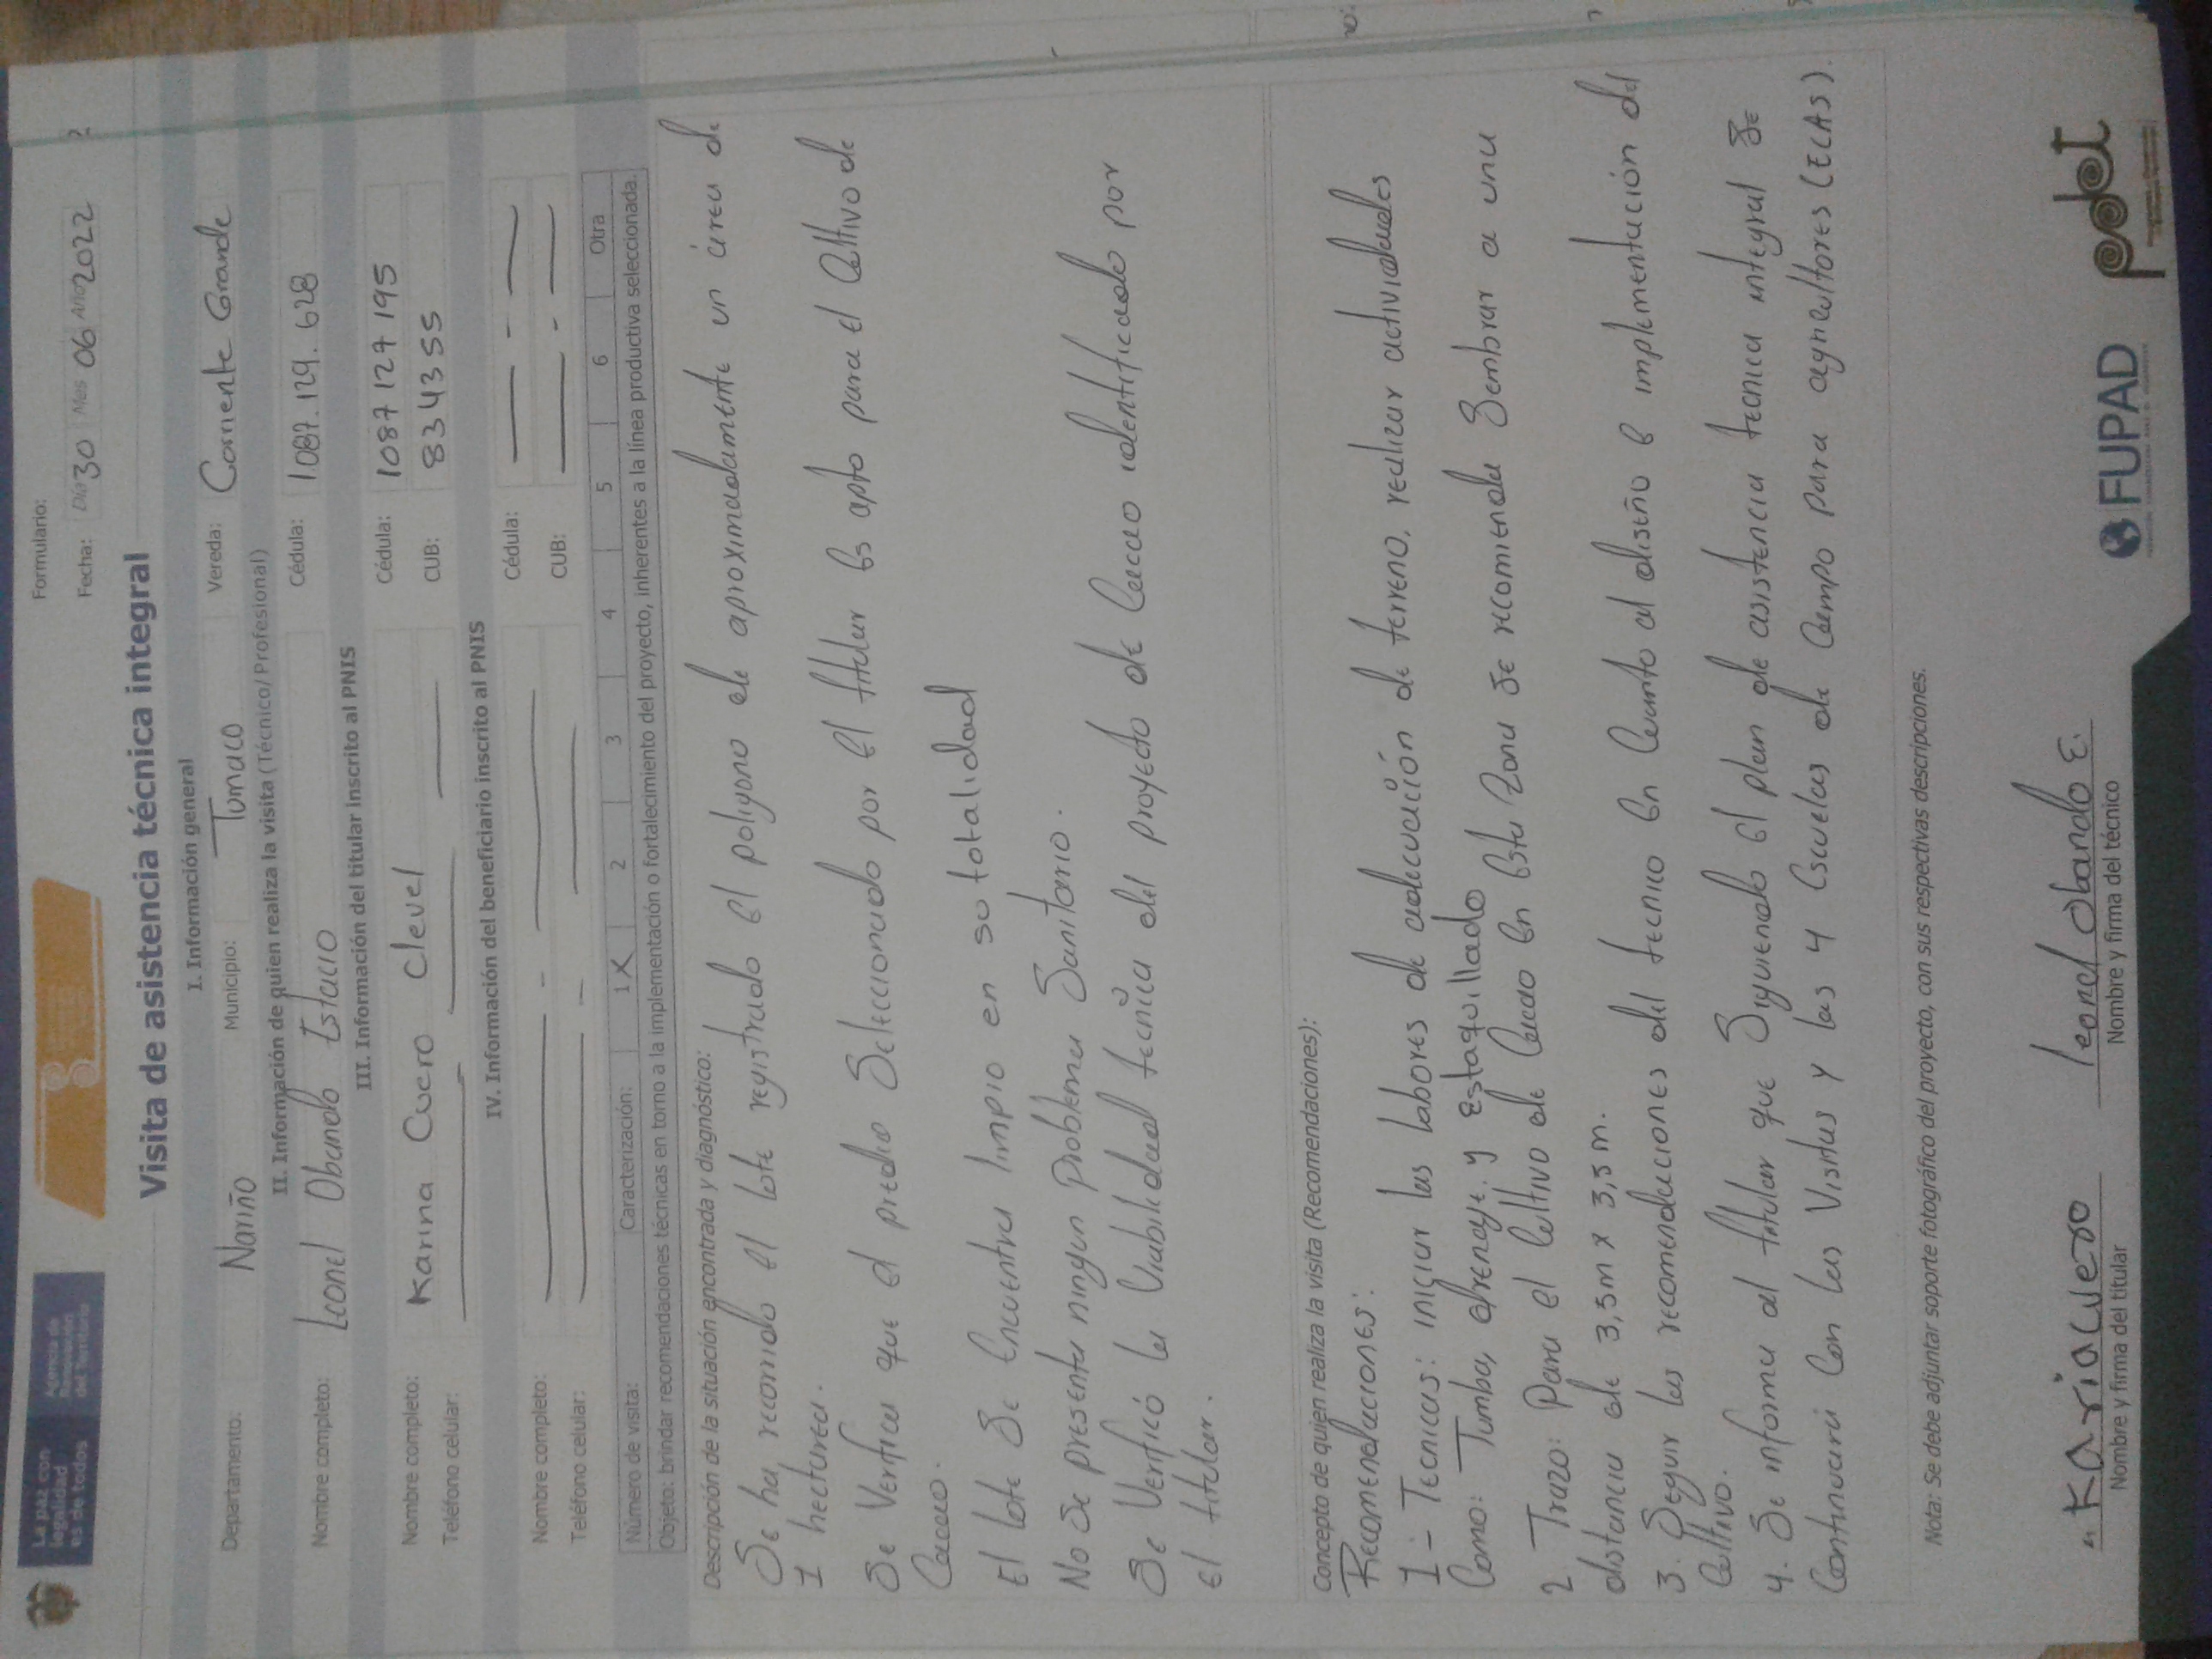 La paz con
legalidad
es de todos
Agencia de
Renovación
del Territorio
Formulario:
Fecha: Día 30 Mes 06 Año 2022
Visita de asistencia técnica integral
I. Información general
Departamento: Nariño Municipio: Tumaco Vereda: Corriente Grande
II. Información de quien realiza la visita (Técnico/ Profesional)
Nombre completo: Leonel Obando Estacio Cédula: 1.087.129.628
III. Información del titular inscrito al PNIS
Nombre completo: Karina Cuero Clevel Cédula: 1087 127 195
Teléfono celular: CUB: 834355
IV. Información del beneficiario inscrito al PNIS
Nombre completo: Cédula:
Teléfono celular: CUB:
Número de visita: Caracterización: 1 X 2 3 4 5 6 Otra
Objeto: brindar recomendaciones técnicas en torno a la implementación o fortalecimiento del proyecto, inherentes a la línea productiva seleccionada.
Descripción de la situación encontrada y diagnóstico:
Se ha recorrido el lote registrado el poligono de aproximadamente un área de
1 hectarea.
Se Verifica que el predio Seleccionado por el titular es apto para el Cultivo de
Cacao.
El lote Se Encuentra limpio en su totalidad
No Se presenta ningun Problema Sanitario.
Se Verificó la Viabilidad tecnica del proyecto de Cacao identificado por
el titular.
Concepto de quien realiza la visita (Recomendaciones):
Recomendaciones:
1- Tecnicas: iniciar las labores de adecuación de terreno, realizar actividades
Como: Tumba, drenaje, y Estaquillado
2. Trazo: Para el Cultivo de Cacao en esta Zona se recomienda Sembrar a una
distancia de 3,5m x 3,5 m.
3. Seguir las recomendaciones del tecnico en Cuanto al diseño e implementación del
Cultivo.
4. Se informa al titular que Siguiendo el plan de asistencia tecnica integral Se
Continuará Con las Visitas y las 4 Escuelas de Campo para agricultores (ECAS).
Nota: Se debe adjuntar soporte fotográfico del proyecto, con sus respectivas descripciones.
Karia cuero
Nombre y firma del titular
leonel obando E.
Nombre y firma del técnico
FUPAD
pdet